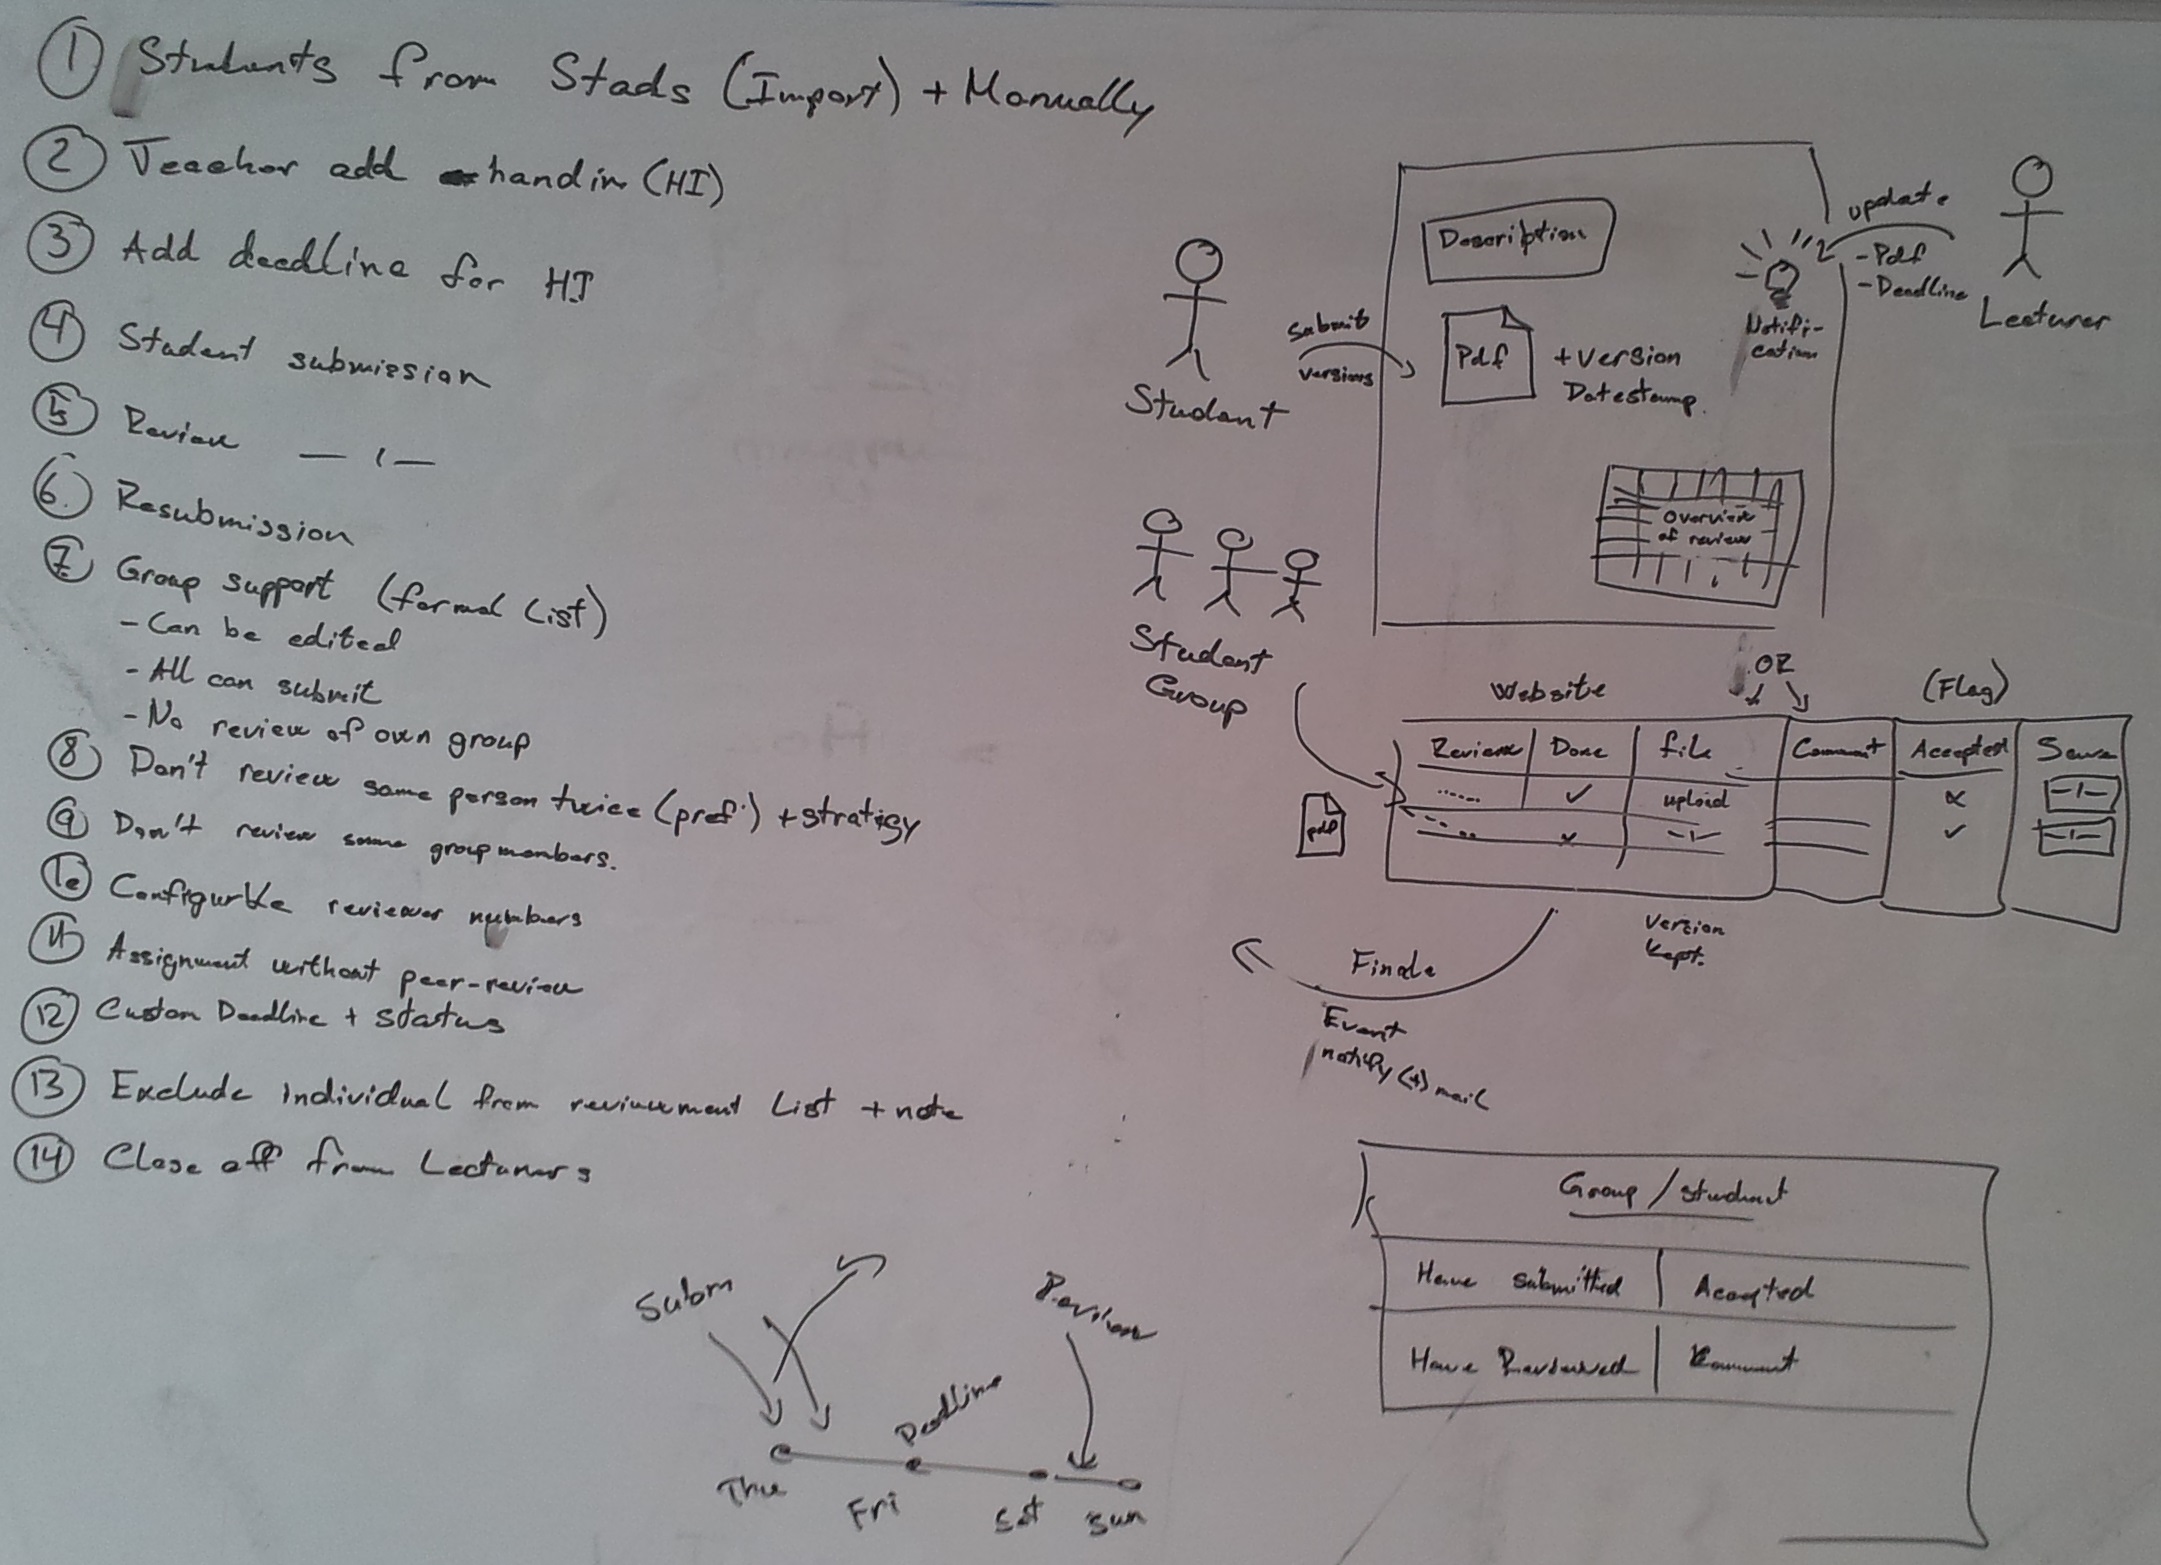 1 Students from Stads (Import) + Manually
2 Teacher add handin (HI)
3 Add deadline for HI
4 Student submission
5 Review — ı —
6. Resubmission
7. Group support (formal List)
- Can be edited
- All can submit
- No review of own group
8 Don't review same person twice (pref.) + stratigy
9 Don't review same groupmembers.
10 Configurble reviewer numbers
11 Assignment without peer-review
12 Custom Deadline + status
13 Exclude individual from List + note
14 Close off from Lecturers
Student
submit
versions
Description
Pdf
+ version
Datestamp.
Notifi-
cation
update
- Pdf
- Deadline
Lecturer
Overview
of review
Student
Group
Website
OR
(Flag)
Review Done file Comment Accepted
..... ✓ upload x -ı-
..... x -ı- ✓ -ı-
pdf
Version
kept.
Finale
Event
notify (+) mail
Group / student
Have submitted Accepted
Have Reviewed Comment
Subm
Deadline
Thu
Fri
Sat
Sun